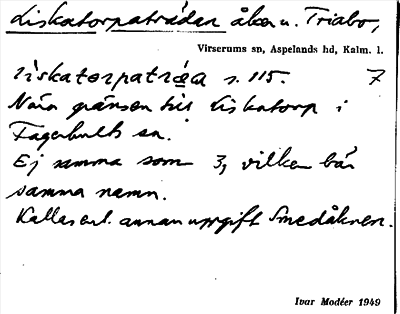 Liskatorpaträden åker u. Triabo,
Virserums sn, Aspelands hd, Kalm. l.
liskatorpatræa s. 115. 7
Nära gränsen till Liskatorp i
Fagerhults sn.
Ej samma som 3, vilken bär
samma namn.
Kallas enl. annan uppgift Smedåkern.
Ivar Modéer 1949